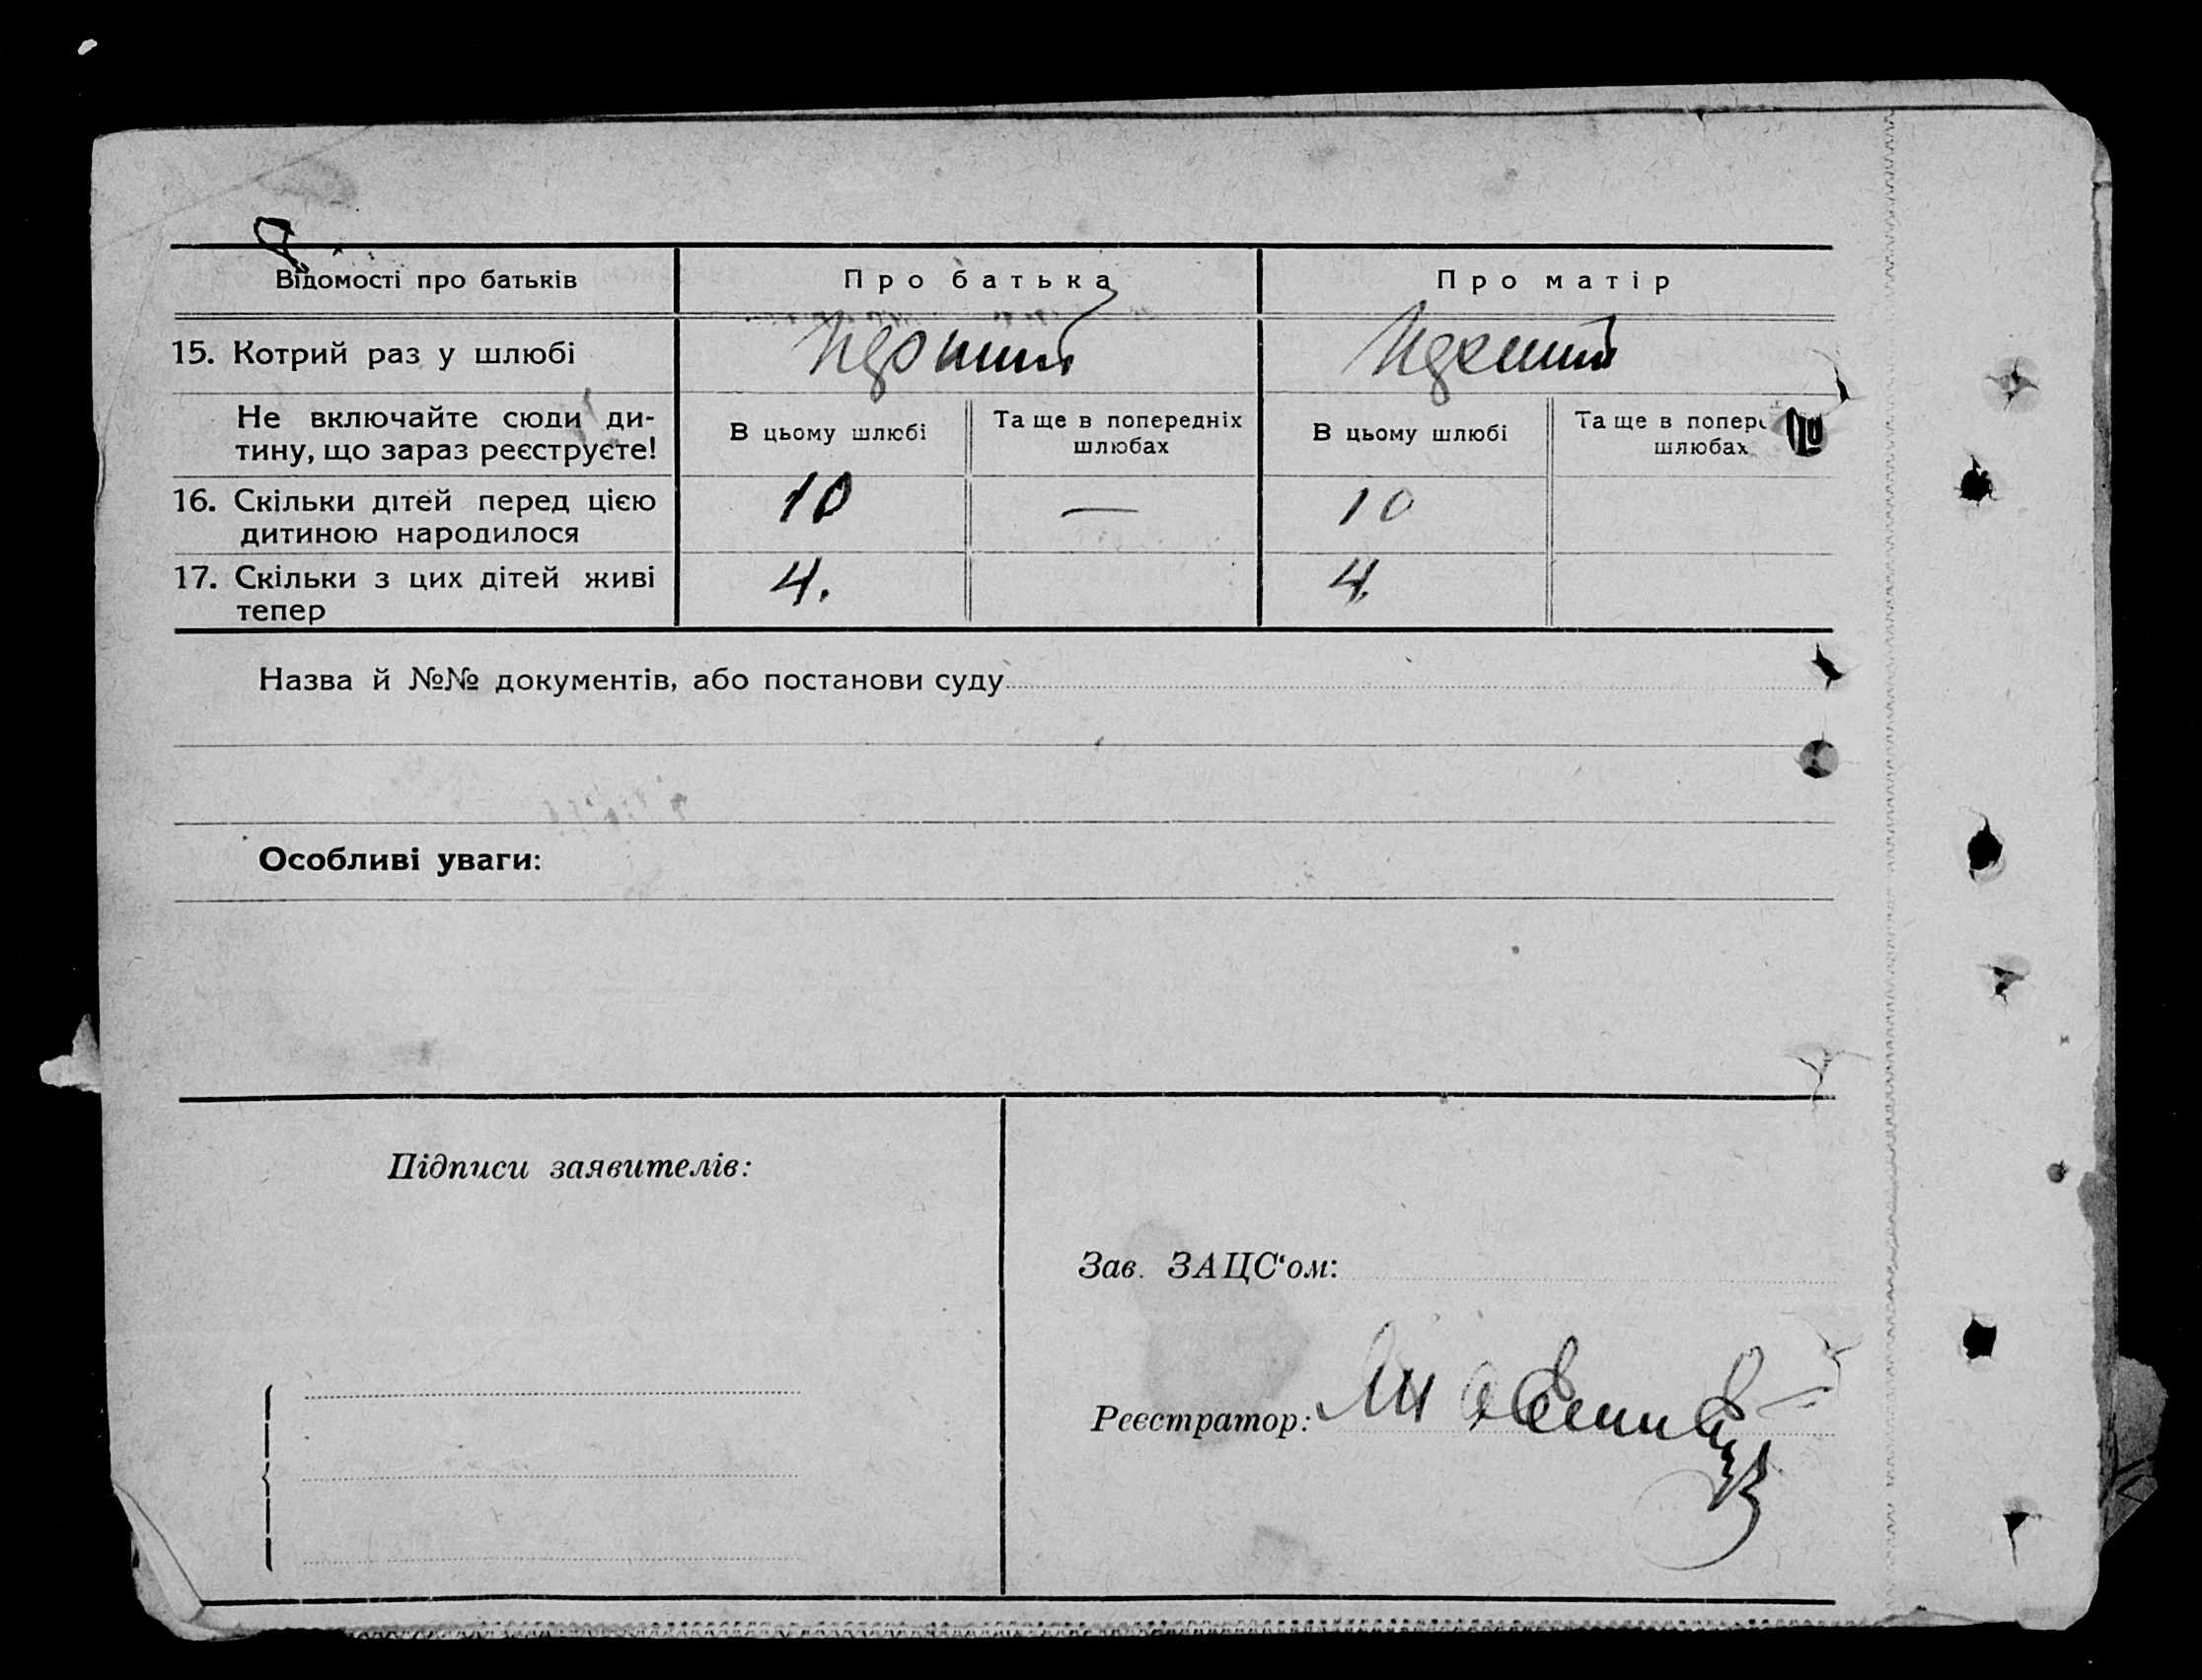 Відомості про батьків Про батька Про матір
15. Котрий раз у шлюбі Перший Перший
Не включайте сюди ди-
тину, що зараз реєструєте!
В цьому шлюбі
Та ще в попередніх
шлюбах
В цьому шлюбі
Та ще в попере
шлюбах
16. Скільки дітей перед цією
дитиною народилося
10 — 10
17. Скільки з цих дітей живі
тепер
4. 4.
Назва й №№ документів, або постанови суду
Особливі уваги:
Підписи заявителів:
Зав. ЗАЦС‘ом:
Реєстратор: